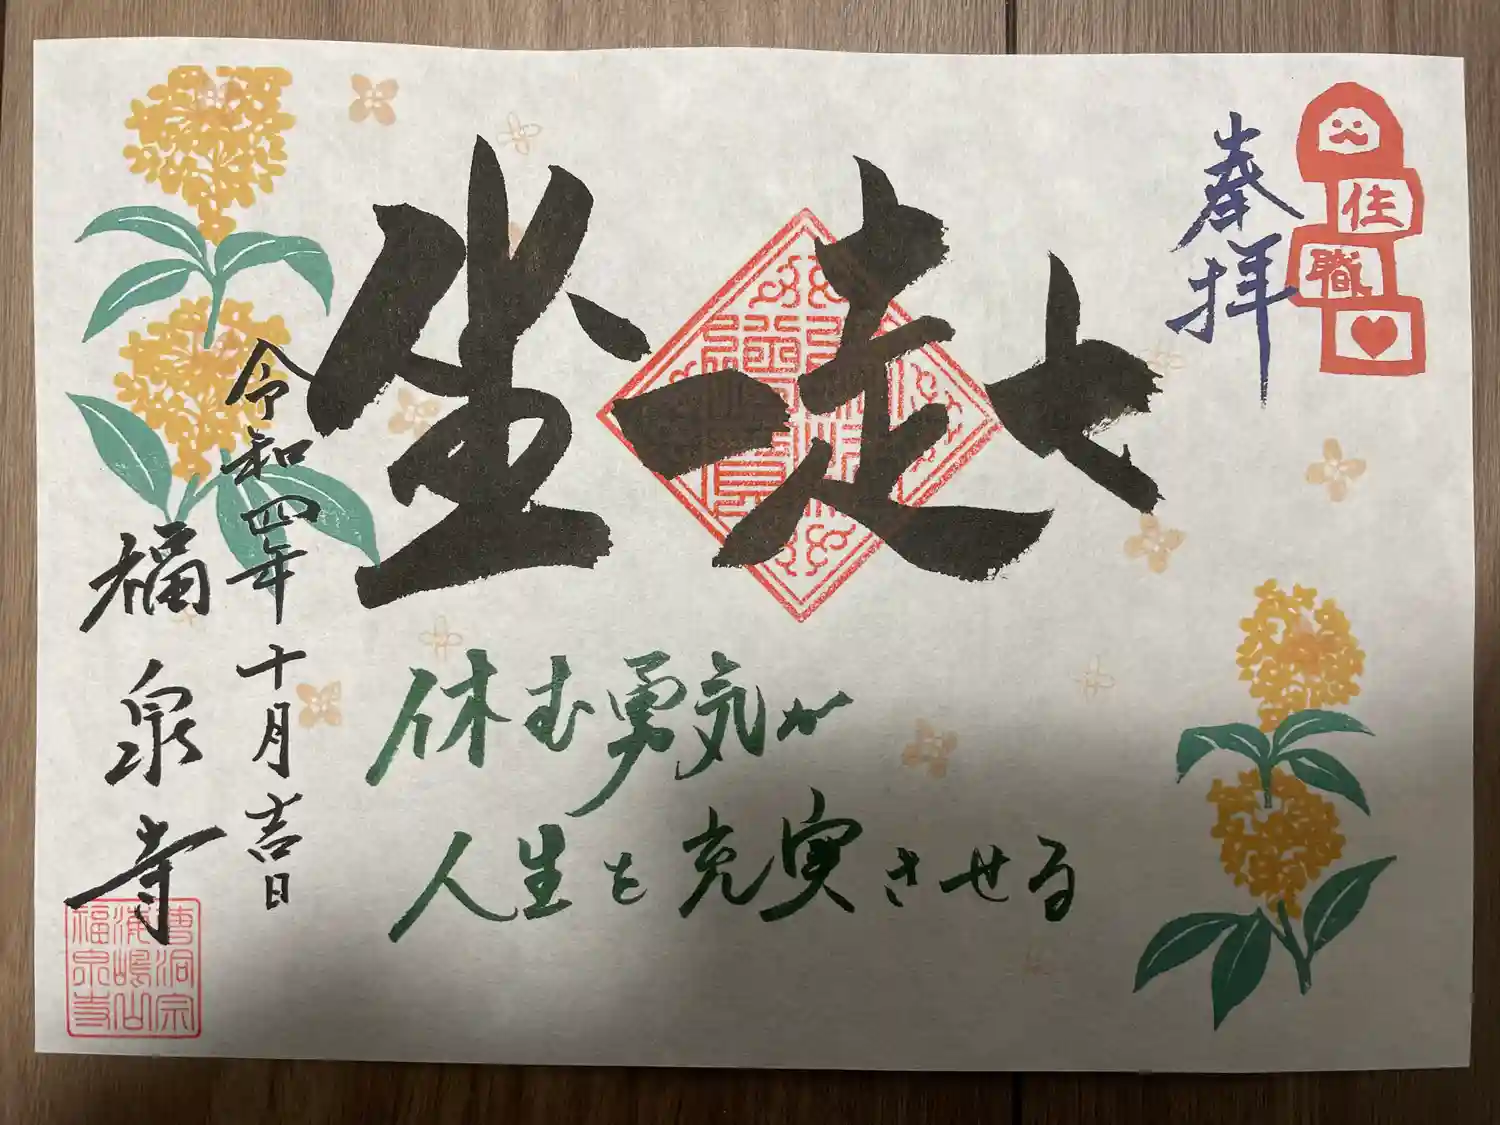 奉拝
住
職
七走一坐
休む勇気が
人生を充実させる
令和四年十月吉日
福泉寺
曹洞宗
海嶋山
福泉寺